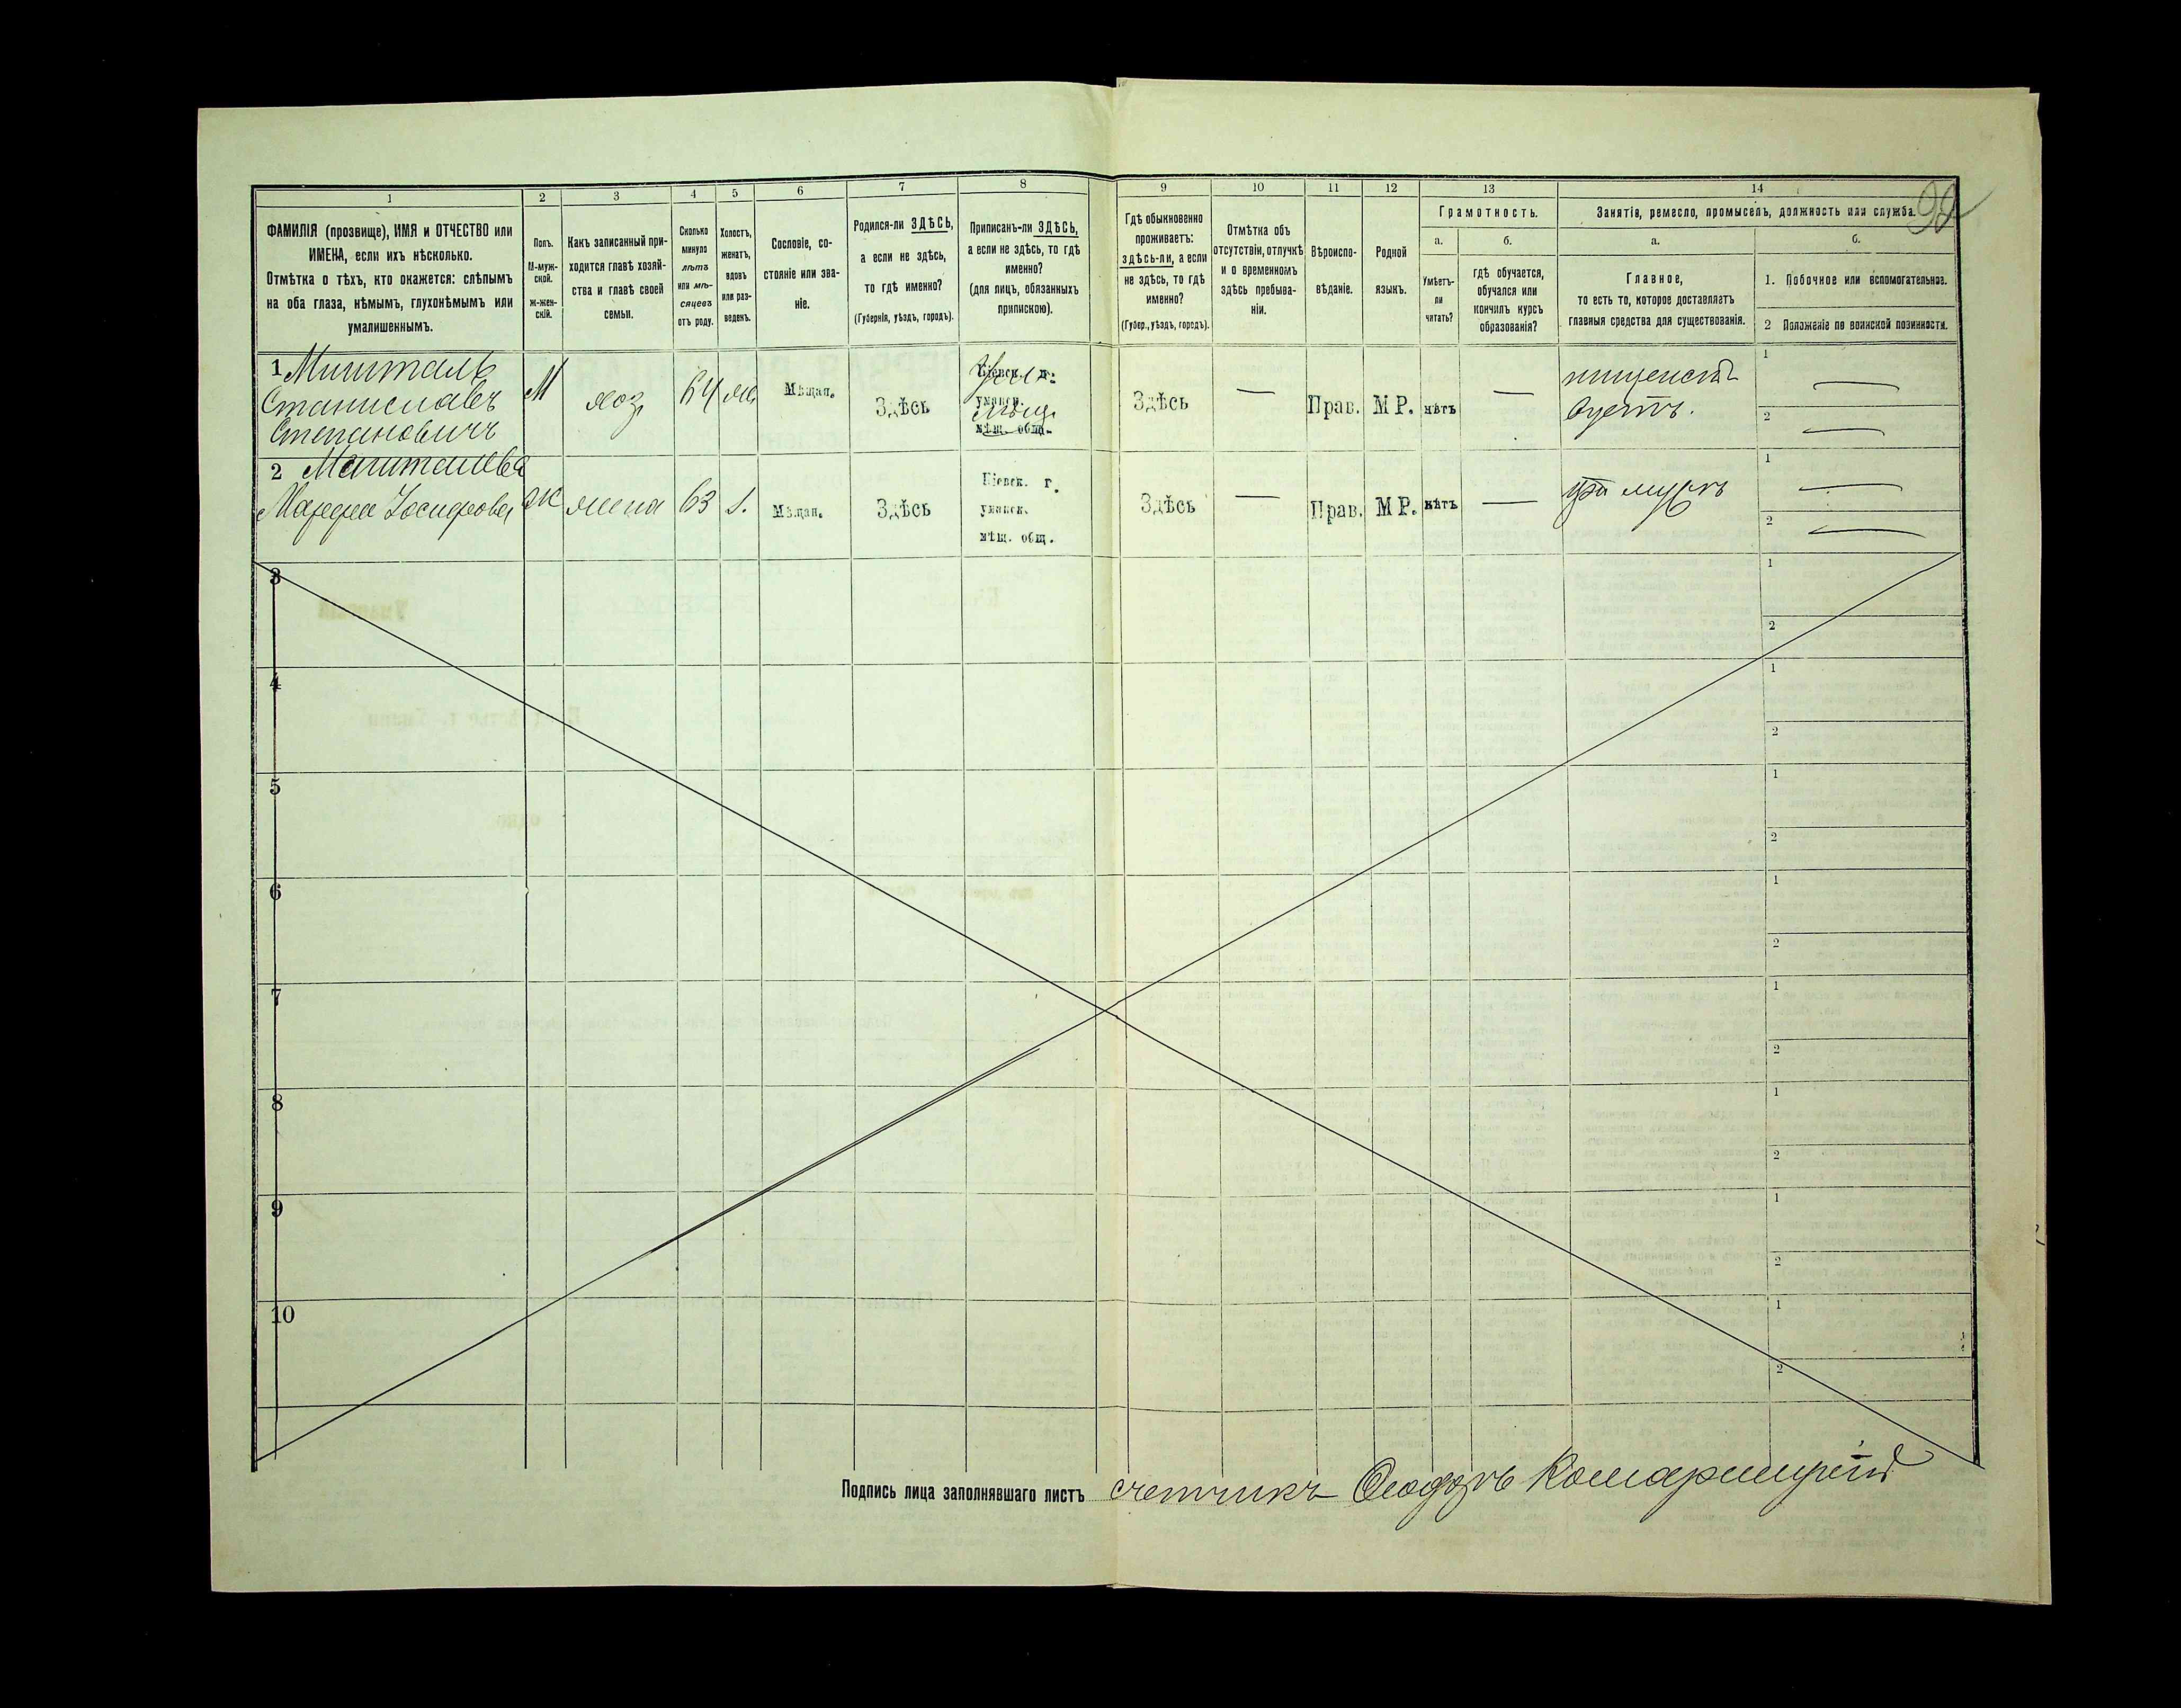 92
1 2 3 4 5 6 7 8 9 10 11 12 13 14
ФАМИЛІЯ (прозвище), ИМЯ и ОТЧЕСТВО или
ИМЕНА, если ихъ нѣсколько.
Отмѣтка о тѣхъ, кто окажется: слѣпымъ
на оба глаза, нѣмымъ, глухонѣмымъ или
умалишеннымъ.
Полъ.
М-муж-
ской.
Ж-жен-
скій.
Какъ записанный при-
ходится главѣ хозяй-
ства и главѣ своей
семьи.
Сколько
минуло
лѣтъ
или мѣ-
сяцевъ
отъ роду.
Холостъ,
женатъ,
вдовъ
или раз-
веденъ.
Сословіе, со-
стояніе или зва-
ніе.
Родился-ли ЗДѢСЬ,
а если не здѣсь,
то гдѣ именно?
(Губернія, уѣздъ, городъ).
Приписанъ-ли ЗДѢСЬ,
а если не здѣсь, то гдѣ
именно?
(для лицъ, обязанныхъ
припискою).
Гдѣ обыкновенно
проживаетъ:
здѣсь-ли, а если
не здѣсь, то гдѣ
именно?
(Губер., уѣздъ, городъ).
Отмѣтка объ
отсутствіи, отлучкѣ
и о временномъ
здѣсь пребыва-
ніи.
Вѣроиспо-
вѣданіе.
Родной
языкъ.
Грамотность.
а.
Умѣетъ-
ли
читать?
б.
гдѣ обучается,
обучался или
кончилъ курсъ
образованія?
Занятія, ремесло, промыселъ, должность или служба.
а.
Главное,
то есть то, которое доставляетъ
главныя средства для существованія.
б.
1. Побочное или вспомогательное.
2 Положеніе по воинской повинности.
1
Станиславъ
Степановичъ
М хоз. 64 Мѣщан. Здѣсь
Кіевск. г.
уманск.
мѣщ. общ.
Здѣсь — Прав. МР. нѣтъ —
1 —
2 —
2
Іосифова
Ж жена 63 Мѣщан. Здѣсь
Кіевск. г.
уманск.
мѣщ. общ.
Здѣсь — Прав. МР. нѣтъ — при мужѣ
1 —
2 —
3 1
2
4 1
2
5 1
2
6 1
2
7 1
2
8 1
2
9 1
2
10 1
2
Подпись лица заполнявшаго листъ счетчикъ Ѳеодоръ